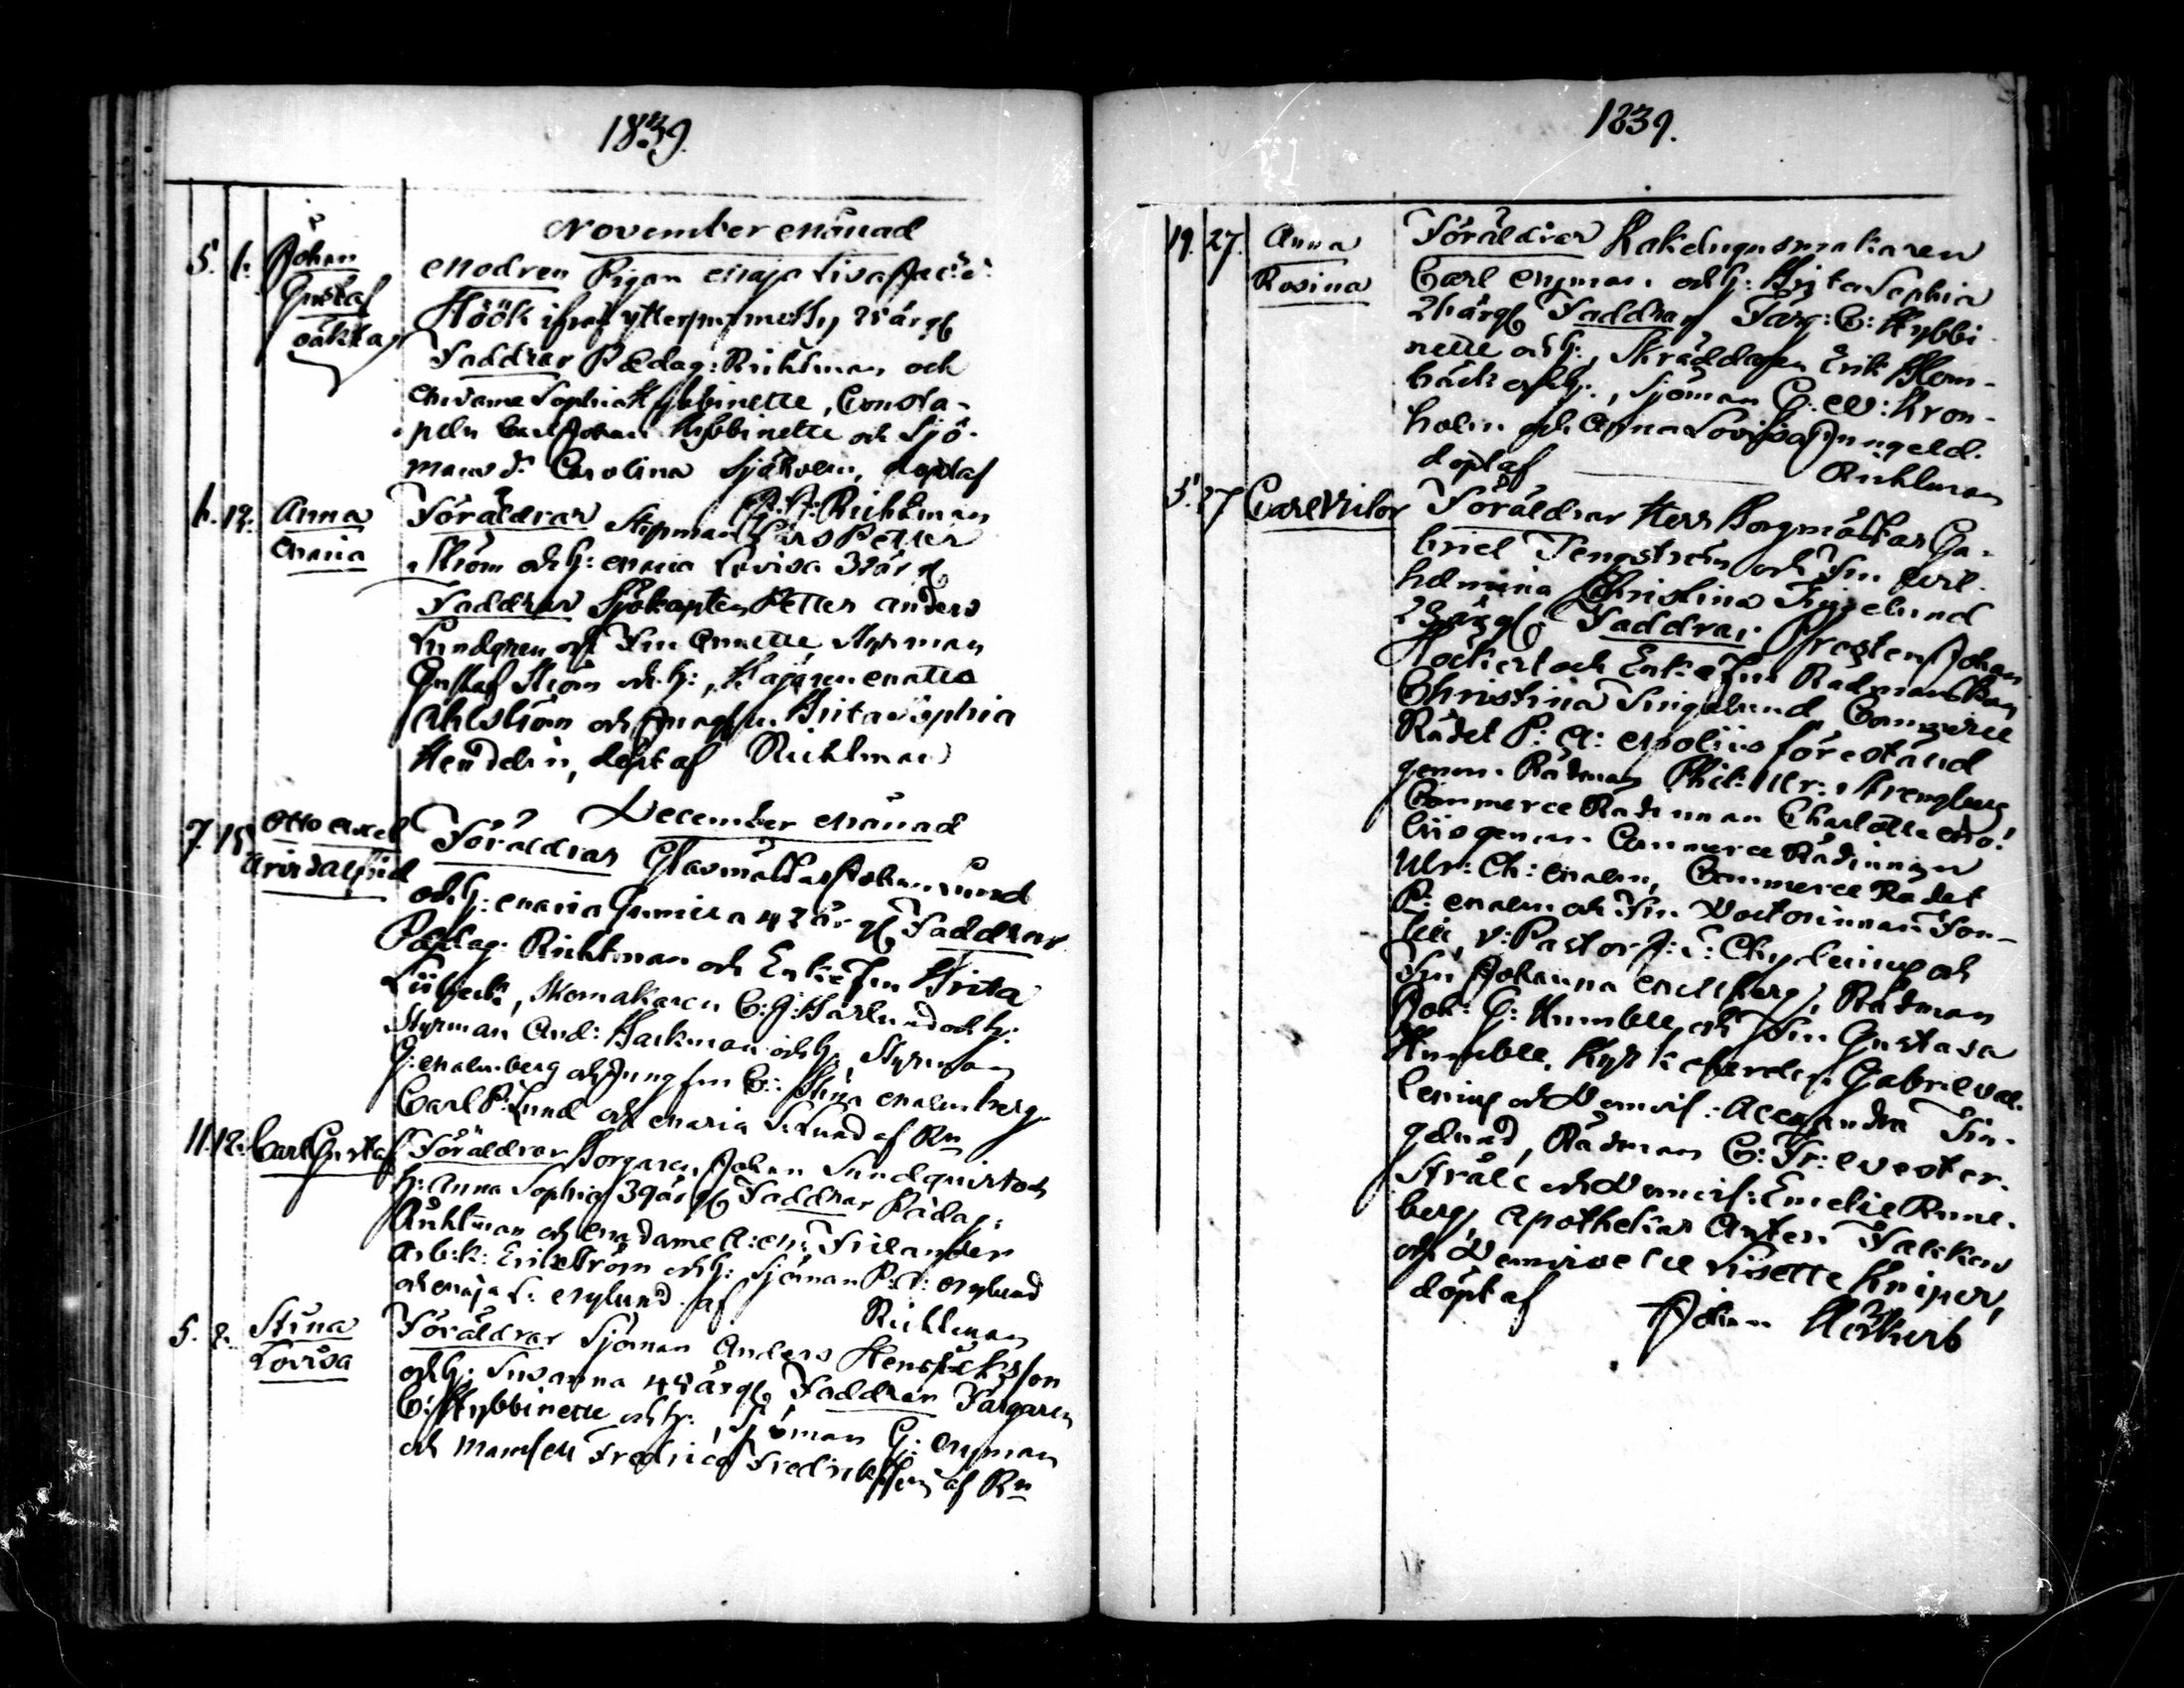 1839.
November Månad
5. 6. Johan Modren Pigan Maja Lisa Jac:s d:
Gustaf Höök ifrån yttersommesby 25 år gl
oäkta Faddrar Pædag: Ruhlman och
Madame Sophia Hybbinette, Consta-
peln Carl Johan Hybbinette och Sjö-
mans d: Carolina Sjöholm, döpt af
P: A: Ruhlman
6. 12. Anna Föräldrar Styrman Lars Petter
Maria Ström och h: Maria Lovisa 32 år gl
Faddrar Sjökapten Petter Anders
Lundgren och Fru Annette, Styrman
Gustaf Ström och h:, Kajaren Matts
Ahlström och Jungfru Brita Sophia
Hendelin, döpt af Ruhlman
December Månad
7. 15 Otto Axel Föräldrar Glasmästar Johan Lund
Arvid Alfrid och h: Maria Gunilla 42 år gl Faddrar
Pædag. Ruhlman och Enke Fru Brita
Lübeck, Skomakaren C: G: Harlund och h:
Styrman And: Backman och h, Styrman
G: Malmberg och Jungfru C: Stina Malmberg
Carl P: Lund och Maria L: Lund af Rn
11. 12. Carl Gustaf Föräldrar Borgaren Johan Sundquist och
h: Anna Sophia 39 år gl Faddrar Pädag:
Ruhlman och Madame A: M: Frilander
Arb:k: Erik Ström och h: Sjöman P: L: Nylund
och Maja L: Nylund. af Ruhlman
5. 8. Stina Föräldrar Sjöman Anders Henricksson
Lovisa och h: Susanna 48 år gl, Faddrar Färgaren
C: Hybbinette och h:, Sjöman G: Nyman
och Mamsell Fredrica Fredrickson af Rn
1839.
19. 27. Anna Föräldrar Kakelugnsmakaren
Rosina Carl Nyman och h: Brita Sophia
26 år gl Faddrar Färg: C: Hybbi
nette och h:, Skräddaren Erik Blom-
bäck och h:, Sjöman C: W: Kron-
holm och Anna Lovisa Jungeld.
döpt af Ruhlman
5. 27 Carl Victor Föräldrar Herr Borgmästar Ga-
briel Tengström och Fru Wil-
helmina Christina Fingelund
23 år gl Faddrar Prosten Johan
Höckert och Enke Fru Rådmanskan
Christina Fingelund, Commerce
Rådet P: A: Molijs förestånd
genom Rådman Phil: Ulr: Strengberg
Commerce Rådinnan Charlotta Mo:
lijs genom Commerce Rådinnan
Ulr: Ch: Malm, Commerce Rådet
P: Malm och Fru Doctorinnan Fon-
V: Pastor J: F: Chydenius och
Fru Johanna Mellberg, Rådman
Joh: G: Humble och Fru Gustava
Humble, Kyrkoherden Gabriel Wal-
lenius och Demois: Alexandra Fin-
gelund, Rådman C: Fr: Wester-
stråle och Demois: Emelie Rune-
berg, Apothekar Anton Falcken
och Demoiselle Lisette Kniper,
döpt af Johan Höckert